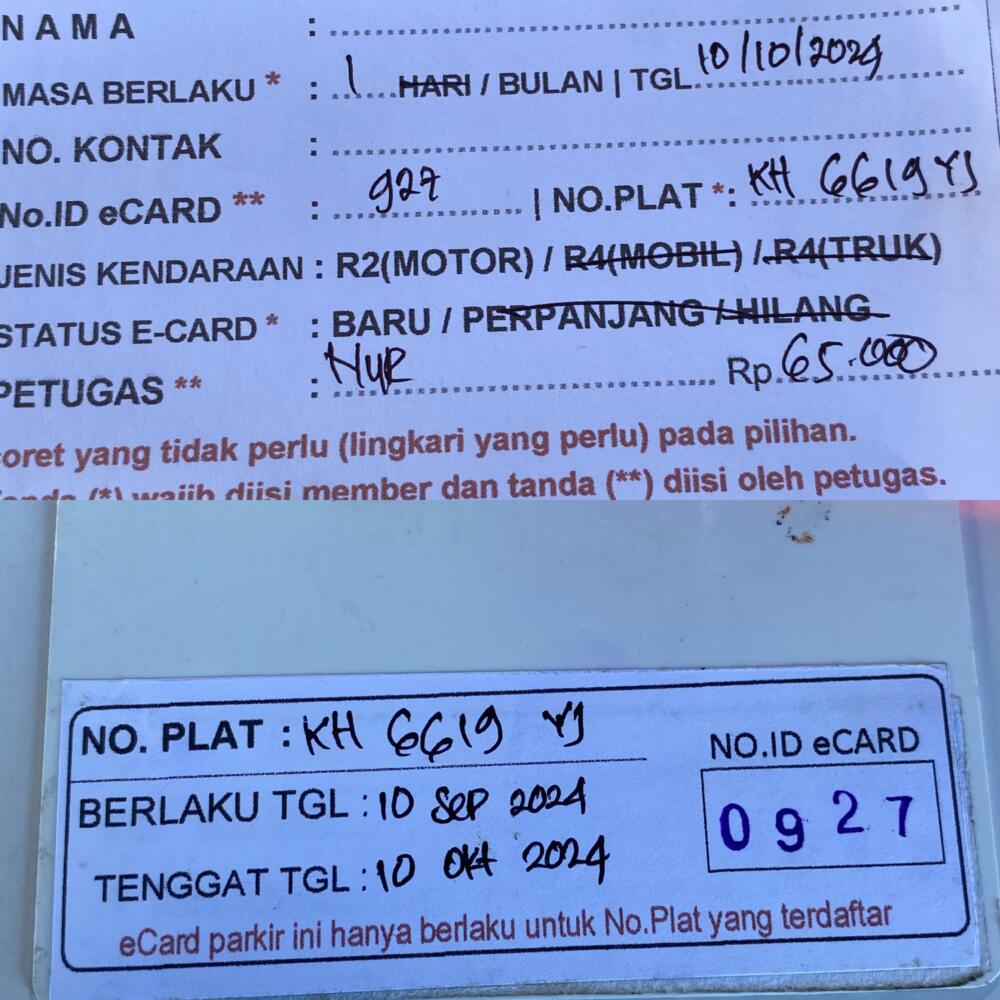 NAMA : 
MASA BERLAKU * : 1 HARI / BULAN | TGL. 10/10/2024
NO. KONTAK :
No.ID eCARD ** : 927 | NO.PLAT *: KH 6619 YJ
JENIS KENDARAAN : R2(MOTOR) / R4(MOBIL) / R4(TRUK)
STATUS E-CARD * : BARU / PERPANJANG / HILANG
PETUGAS ** : NUR Rp. 65.000
coret yang tidak perlu (lingkari yang perlu) pada pilihan.
Tanda (*) wajib diisi member dan tanda (**) diisi oleh petugas.
NO. PLAT : KH 6619 YJ
NO.ID eCARD
BERLAKU TGL : 10 SEP 2024
0927
TENGGAT TGL : 10 OKT 2024
eCard parkir ini hanya berlaku untuk No.Plat yang terdaftar